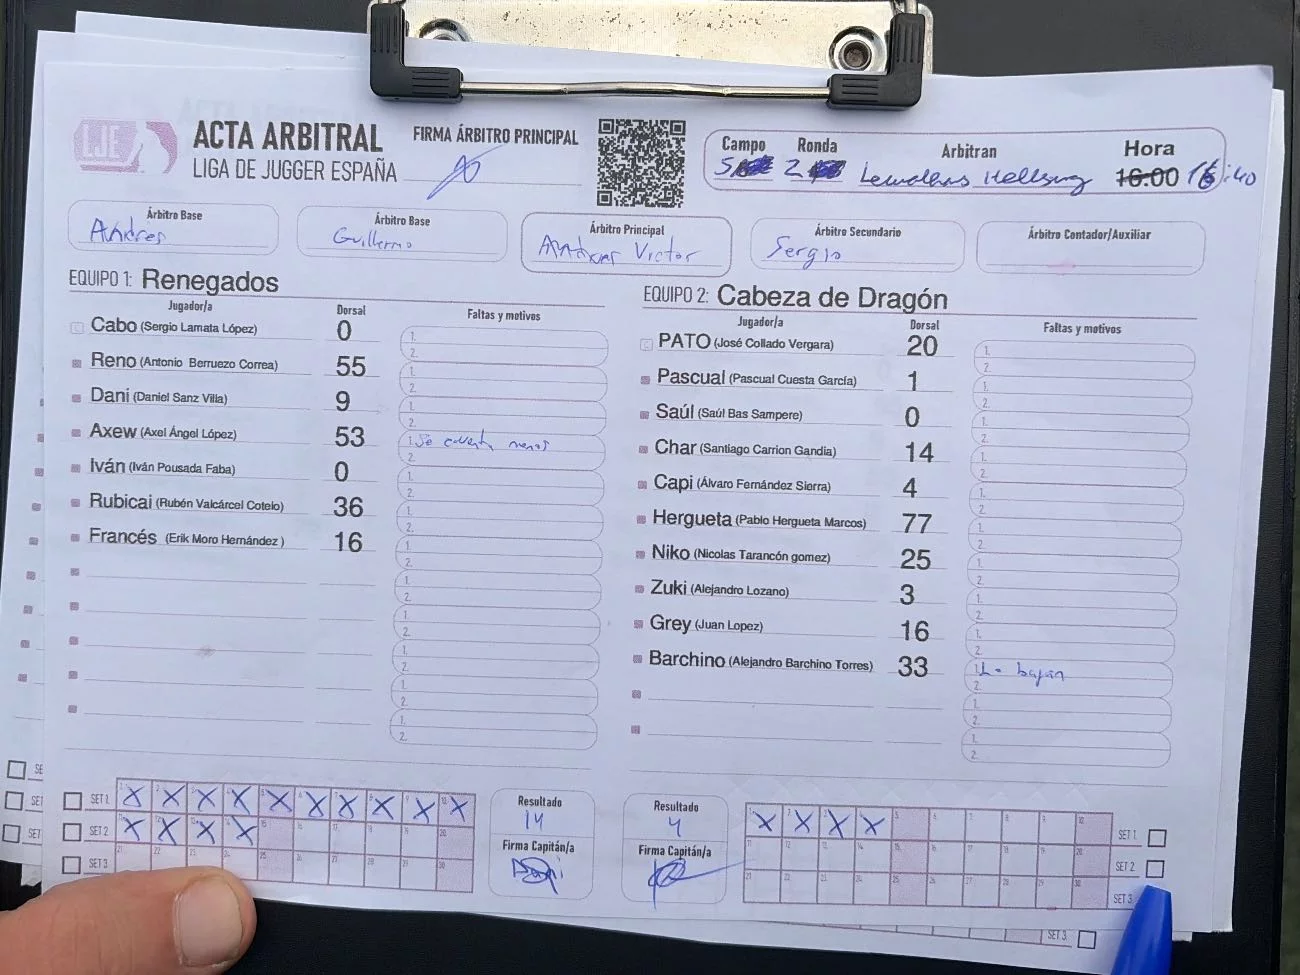 LJE
ACTA ARBITRAL
LIGA DE JUGGER ESPAÑA
FIRMA ÁRBITRO PRINCIPAL
Campo Ronda Arbitran Hora
5 2 Hellsung 16:00 16:40
Árbitro Base
Andrés
Árbitro Base
Guillermo
Árbitro Principal
Victor
Árbitro Secundario
Sergio
Árbitro Contador/Auxiliar
EQUIPO 1: Renegados
Jugador/a Dorsal Faltas y motivos
Cabo (Sergio Lamata López) 0 1. 2.
Reno (Antonio Berruezo Correa) 55 1. 2.
Dani (Daniel Sanz Villa) 9 1. 2.
Axew (Axel Ángel López) 53 1. Se menos 2.
Iván (Iván Pousada Faba) 0 1. 2.
Rubicai (Rubén Valcárcel Cotelo) 36 1. 2.
Francés (Erik Moro Hernández ) 16 1. 2.
1. 2.
1. 2.
1. 2.
1. 2.
1. 2.
EQUIPO 2: Cabeza de Dragón
Jugador/a Dorsal Faltas y motivos
PATO (José Collado Vergara) 20 1. 2.
Pascual (Pascual Cuesta García) 1 1. 2.
Saúl (Saúl Bas Sampere) 0 1. 2.
Char (Santiago Carrion Gandia) 14 1. 2.
Capi (Álvaro Fernández Sierra) 4 1. 2.
Hergueta (Pablo Hergueta Marcos) 77 1. 2.
Niko (Nicolas Tarancón gomez) 25 1. 2.
Zuki (Alejandro Lozano) 3 1. 2.
Grey (Juan Lopez) 16 1. 2.
Barchino (Alejandro Barchino Torres) 33 1. 2.
1. 2.
1. 2.
SET 1. X X X X X X X X X X
SET 2 X X X X
SET 3
Resultado
14
Firma Capitán/a
Resultado
4
Firma Capitán/a
X X X X SET 1.
SET 2
SET 3
SET 3